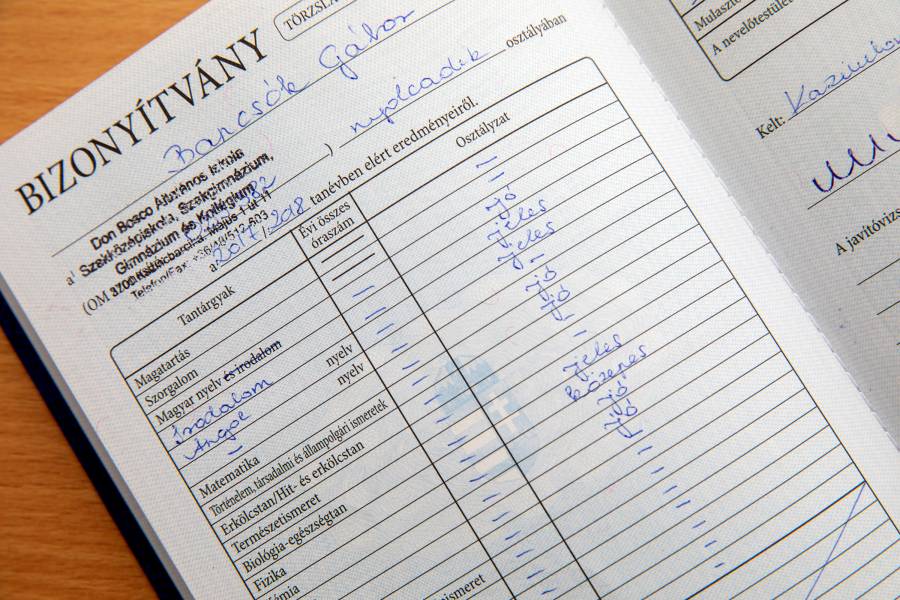 TÖRZSLA
BIZONYÍTVÁNY
Bancsók Gábor
nyolcadik osztályában
Don Bosco Általános Iskola,
Szakközépiskola, Szakgimnázium,
Gimnázium és Kollégium
3700 Kazincbarcika, Május 1 út 11
Telefon/Fax: +36/48/512-603
(OM )
a 2017/2018 tanévben elért eredményeiről.
Tantárgyak
Évi összes óraszám
Osztályzat
Magatartás —
Szorgalom —
Magyar nyelv és irodalom — jó
Irodalom nyelv — jeles
Angol nyelv — jeles
— — —
Matematika — jó
Történelem, társadalmi és állampolgári ismeretek — jó
Erkölcstan/Hit- és erkölcstan
Természetismeret — —
Biológia-egészségtan — jeles
Fizika — közepes
émia — jó
jó
ismeret
Mulaszto
A nevelőtestület
Kelt:
A javítóvizs